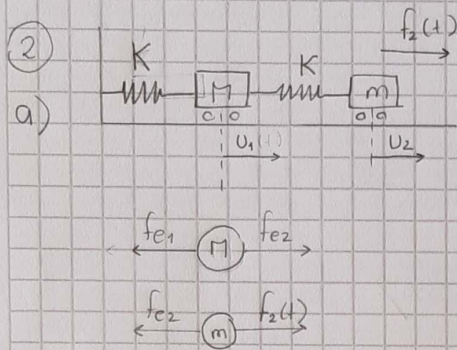 2
f₂(t)
K K
M m
a)
U₁(t) U₂
fe₁ M fe₂
fe₂ m f₂(t)